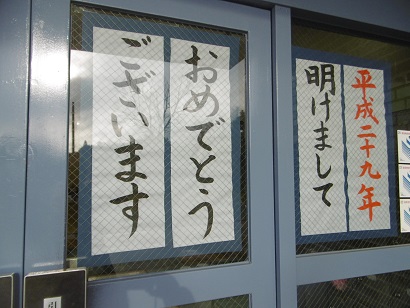 平成二十九年
明けまして
おめでとう
ございます
引